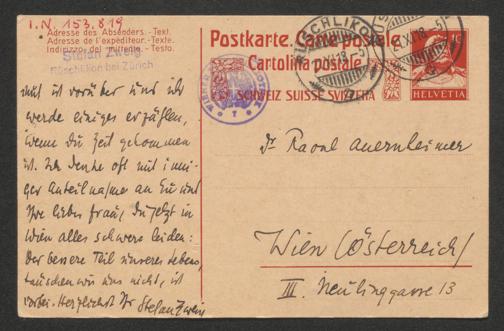 I. N. 153.819
Adresse des Absenders. - Text.
Adresse de l'expéditeur. - Texte.
Indirizzo del mittente. - Testo.
Stefan Zweig
Rüschlikon bei Zürich
Postkarte. Carte postale
Cartolina postale
SCHWEIZ SUISSE SVIZZERA
HELVETIA
RÜSCHLIKON
mist ist vorüber und ich
werde einiges erzählen,
wenn die Zeit gekommen
ist. Ich denke oft mit inni-
ger Anteilnahme an Sie und
Ihre liebe Frau, die jetzt in
Wien alles schwere leiden:
Der bessere Teil unseres Lebens,
täuschen wir uns nicht, ist
vorbei. Herzlichst Ihr Stefan Zweig
Dr Raoul Auernheimer
Wien (Österreich)
III. Neulinggasse 13